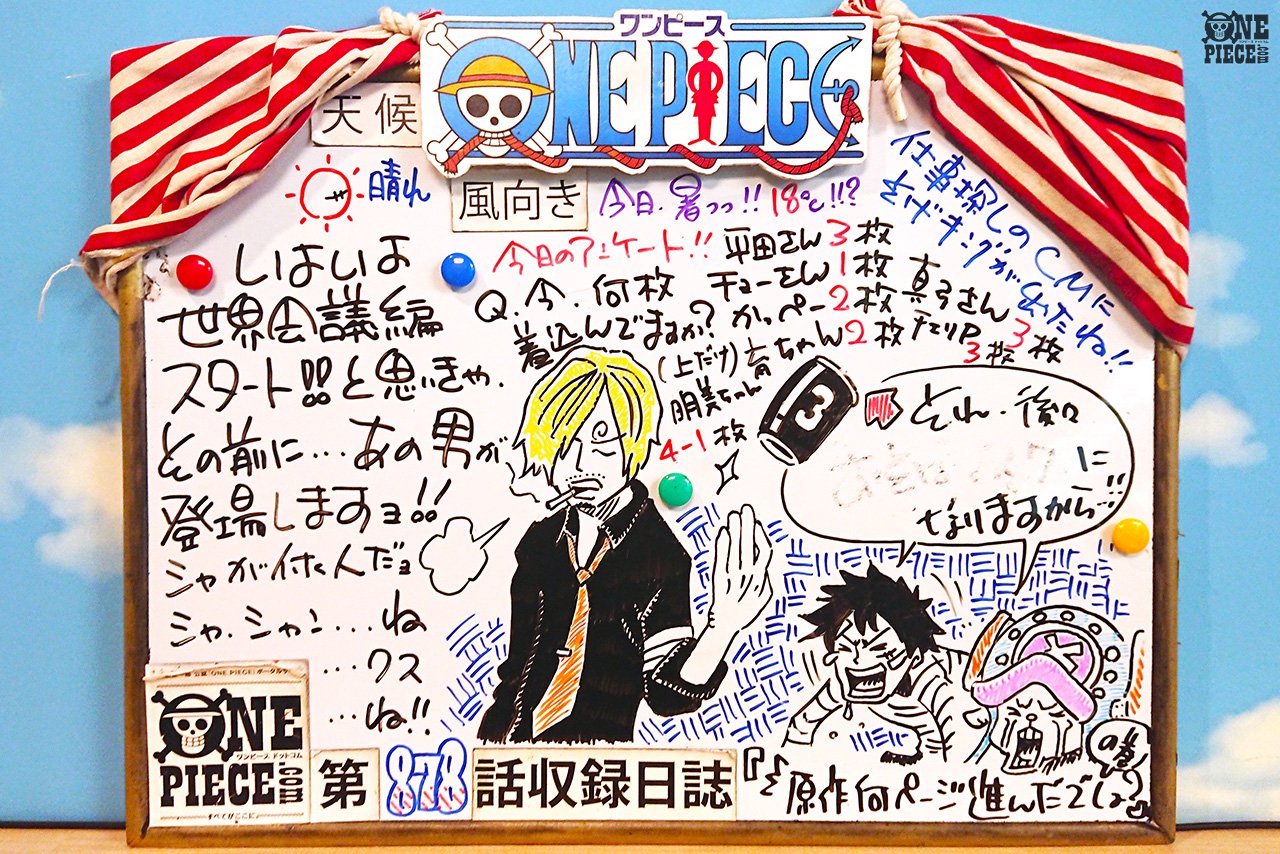 ワンピース
ONE PIECE
ONE
PIECE.com
天候
晴れ
風向き
今日、暑っっ!!18℃!!?
仕事探しのCMに
さげキングが出たね!!
いよいよ
世界会議編
スタート!!と思いきや、
その前に…あの男が
登場しますョ!!
シャが付く人だョ
シャ、シャン…ね
…クス
…ね!!
今日のアンケート!!
Q.今、何枚
着込んでますか?
(上だけ)
平田さん3枚
チョーさん1枚
かっぺー2枚
真弓さん3枚
育ちゃん2枚
チエリP3枚
明美ちゃん
4-1枚
3
それ、後々
に
なりますから…!!
ONE
ワンピース ドットコム
PIECE.com
すべてがここに
第878話収録日誌
『ミ原作何ページ進んだでしょ』
の巻